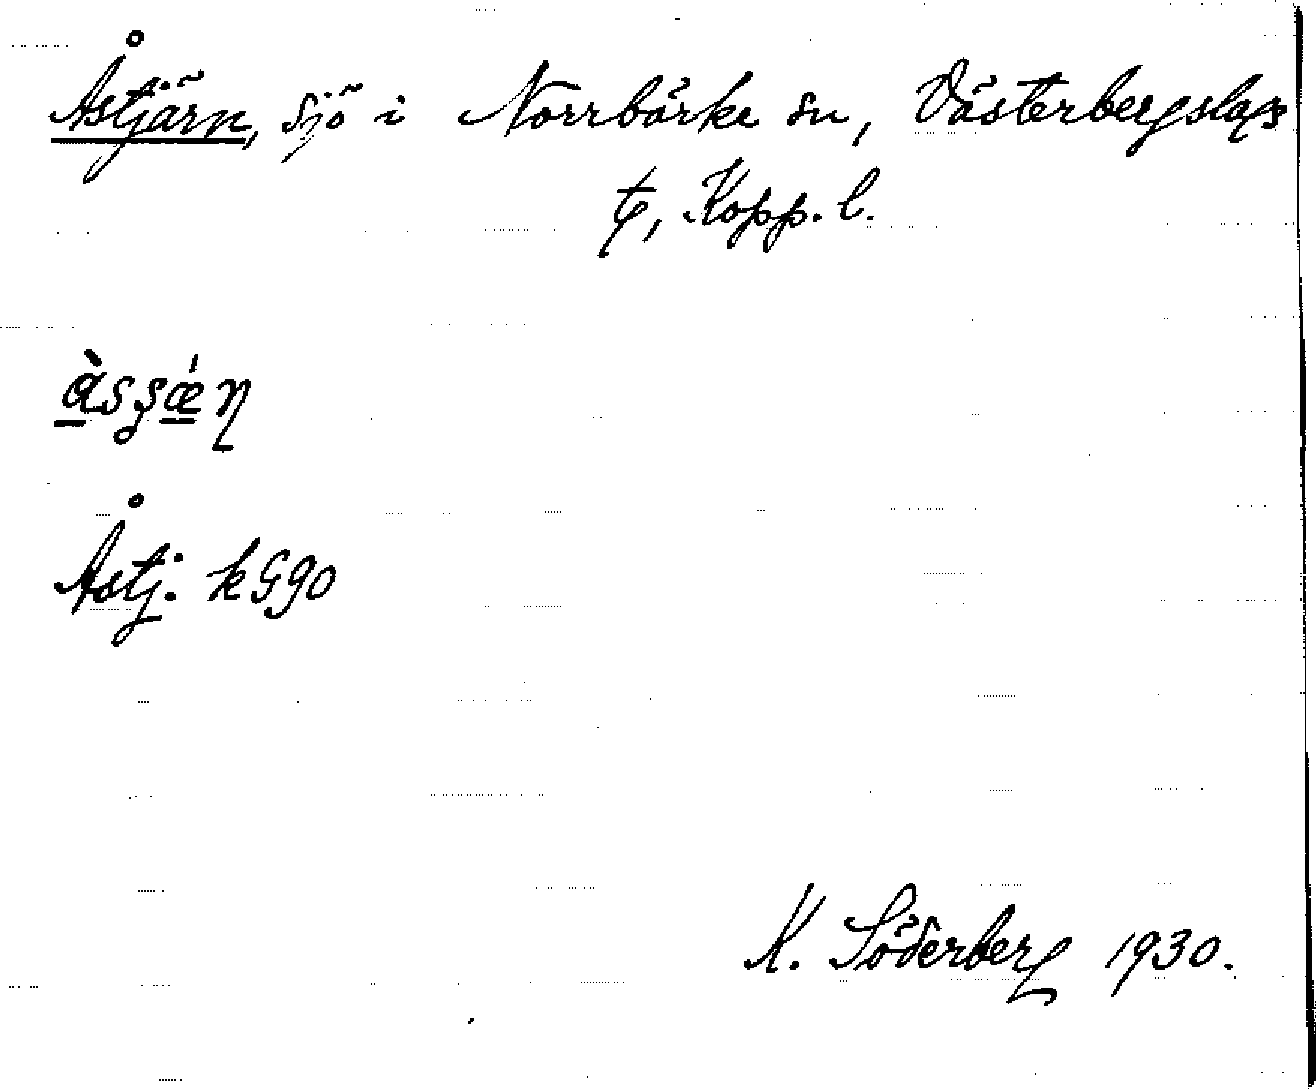 Åstjärn, sjö i Norrbärke sn, Västerbergslags
t, Kopp. l.
Åstj. k G90
K. Söderberg 1930.